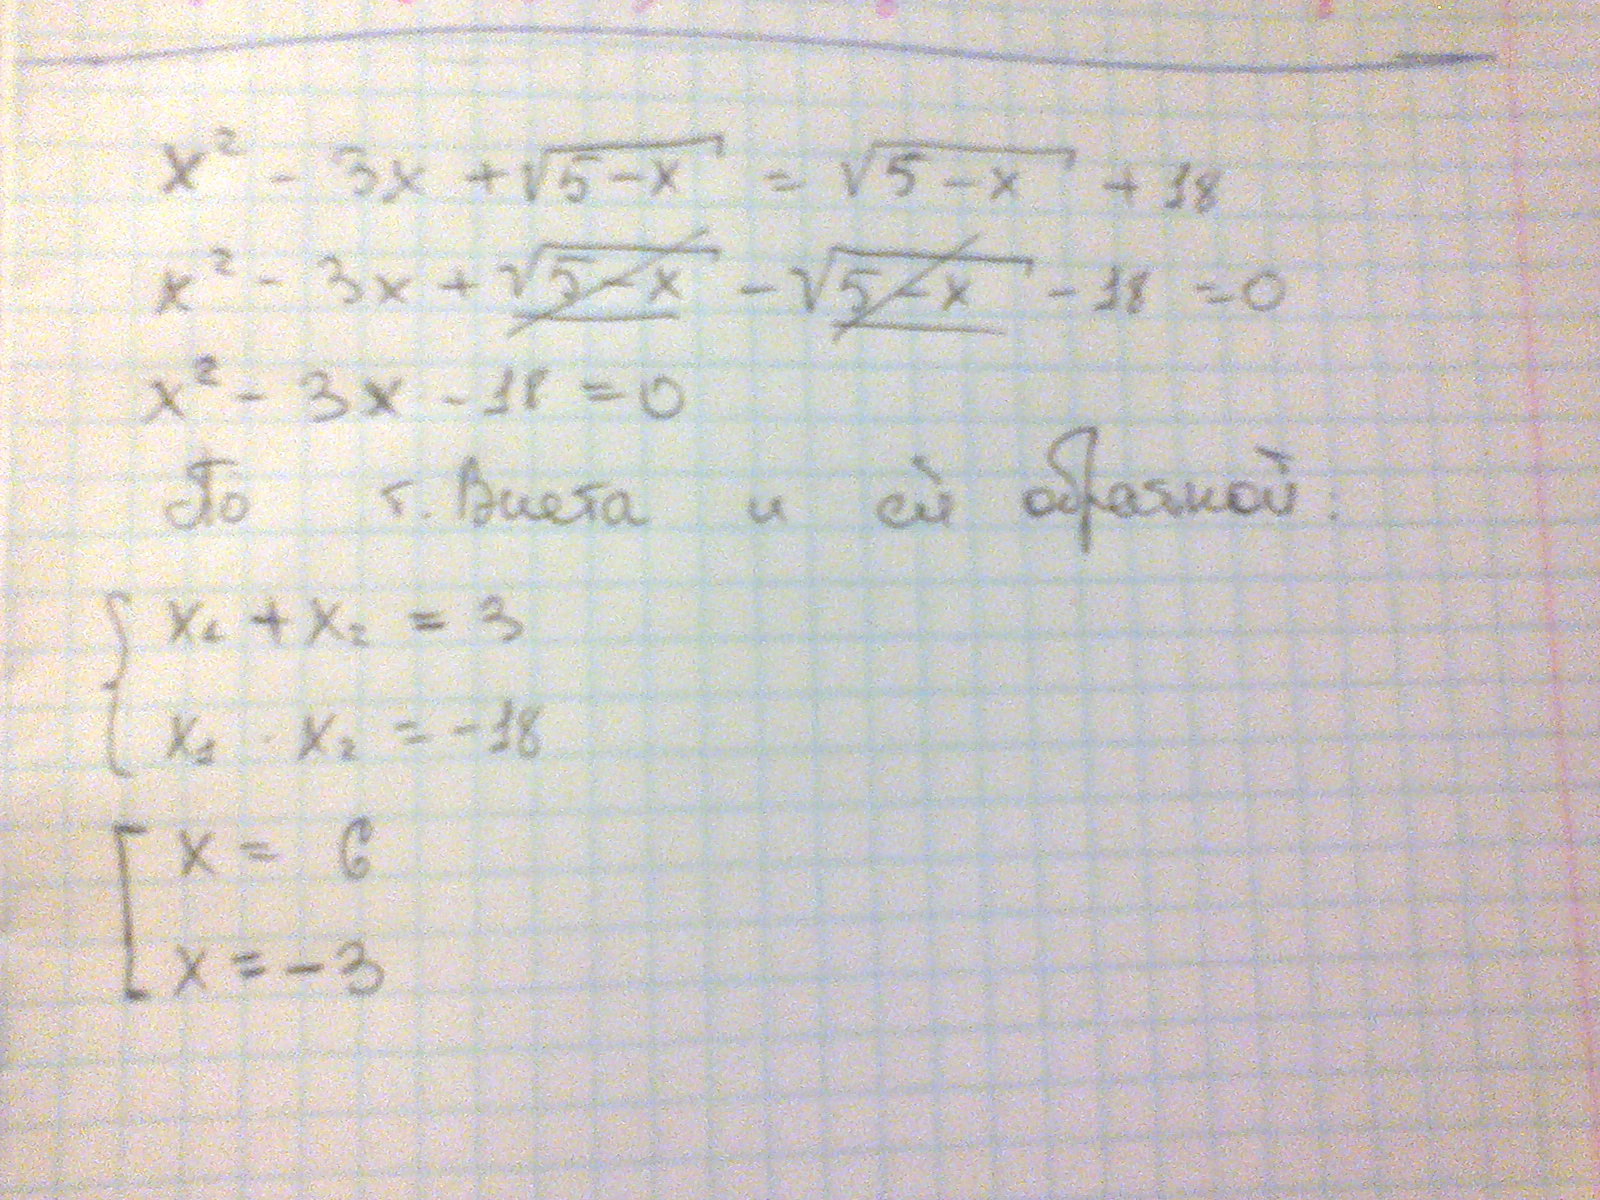 x² - 3x + √5-x = √5-x + 18
x² - 3x + √5-x - √5-x - 18 = 0
x² - 3x - 18 = 0
По т. Виета и ей обратной:
{ x₁ + x₂ = 3
x₁ · x₂ = -18
[ x = 6
x = -3